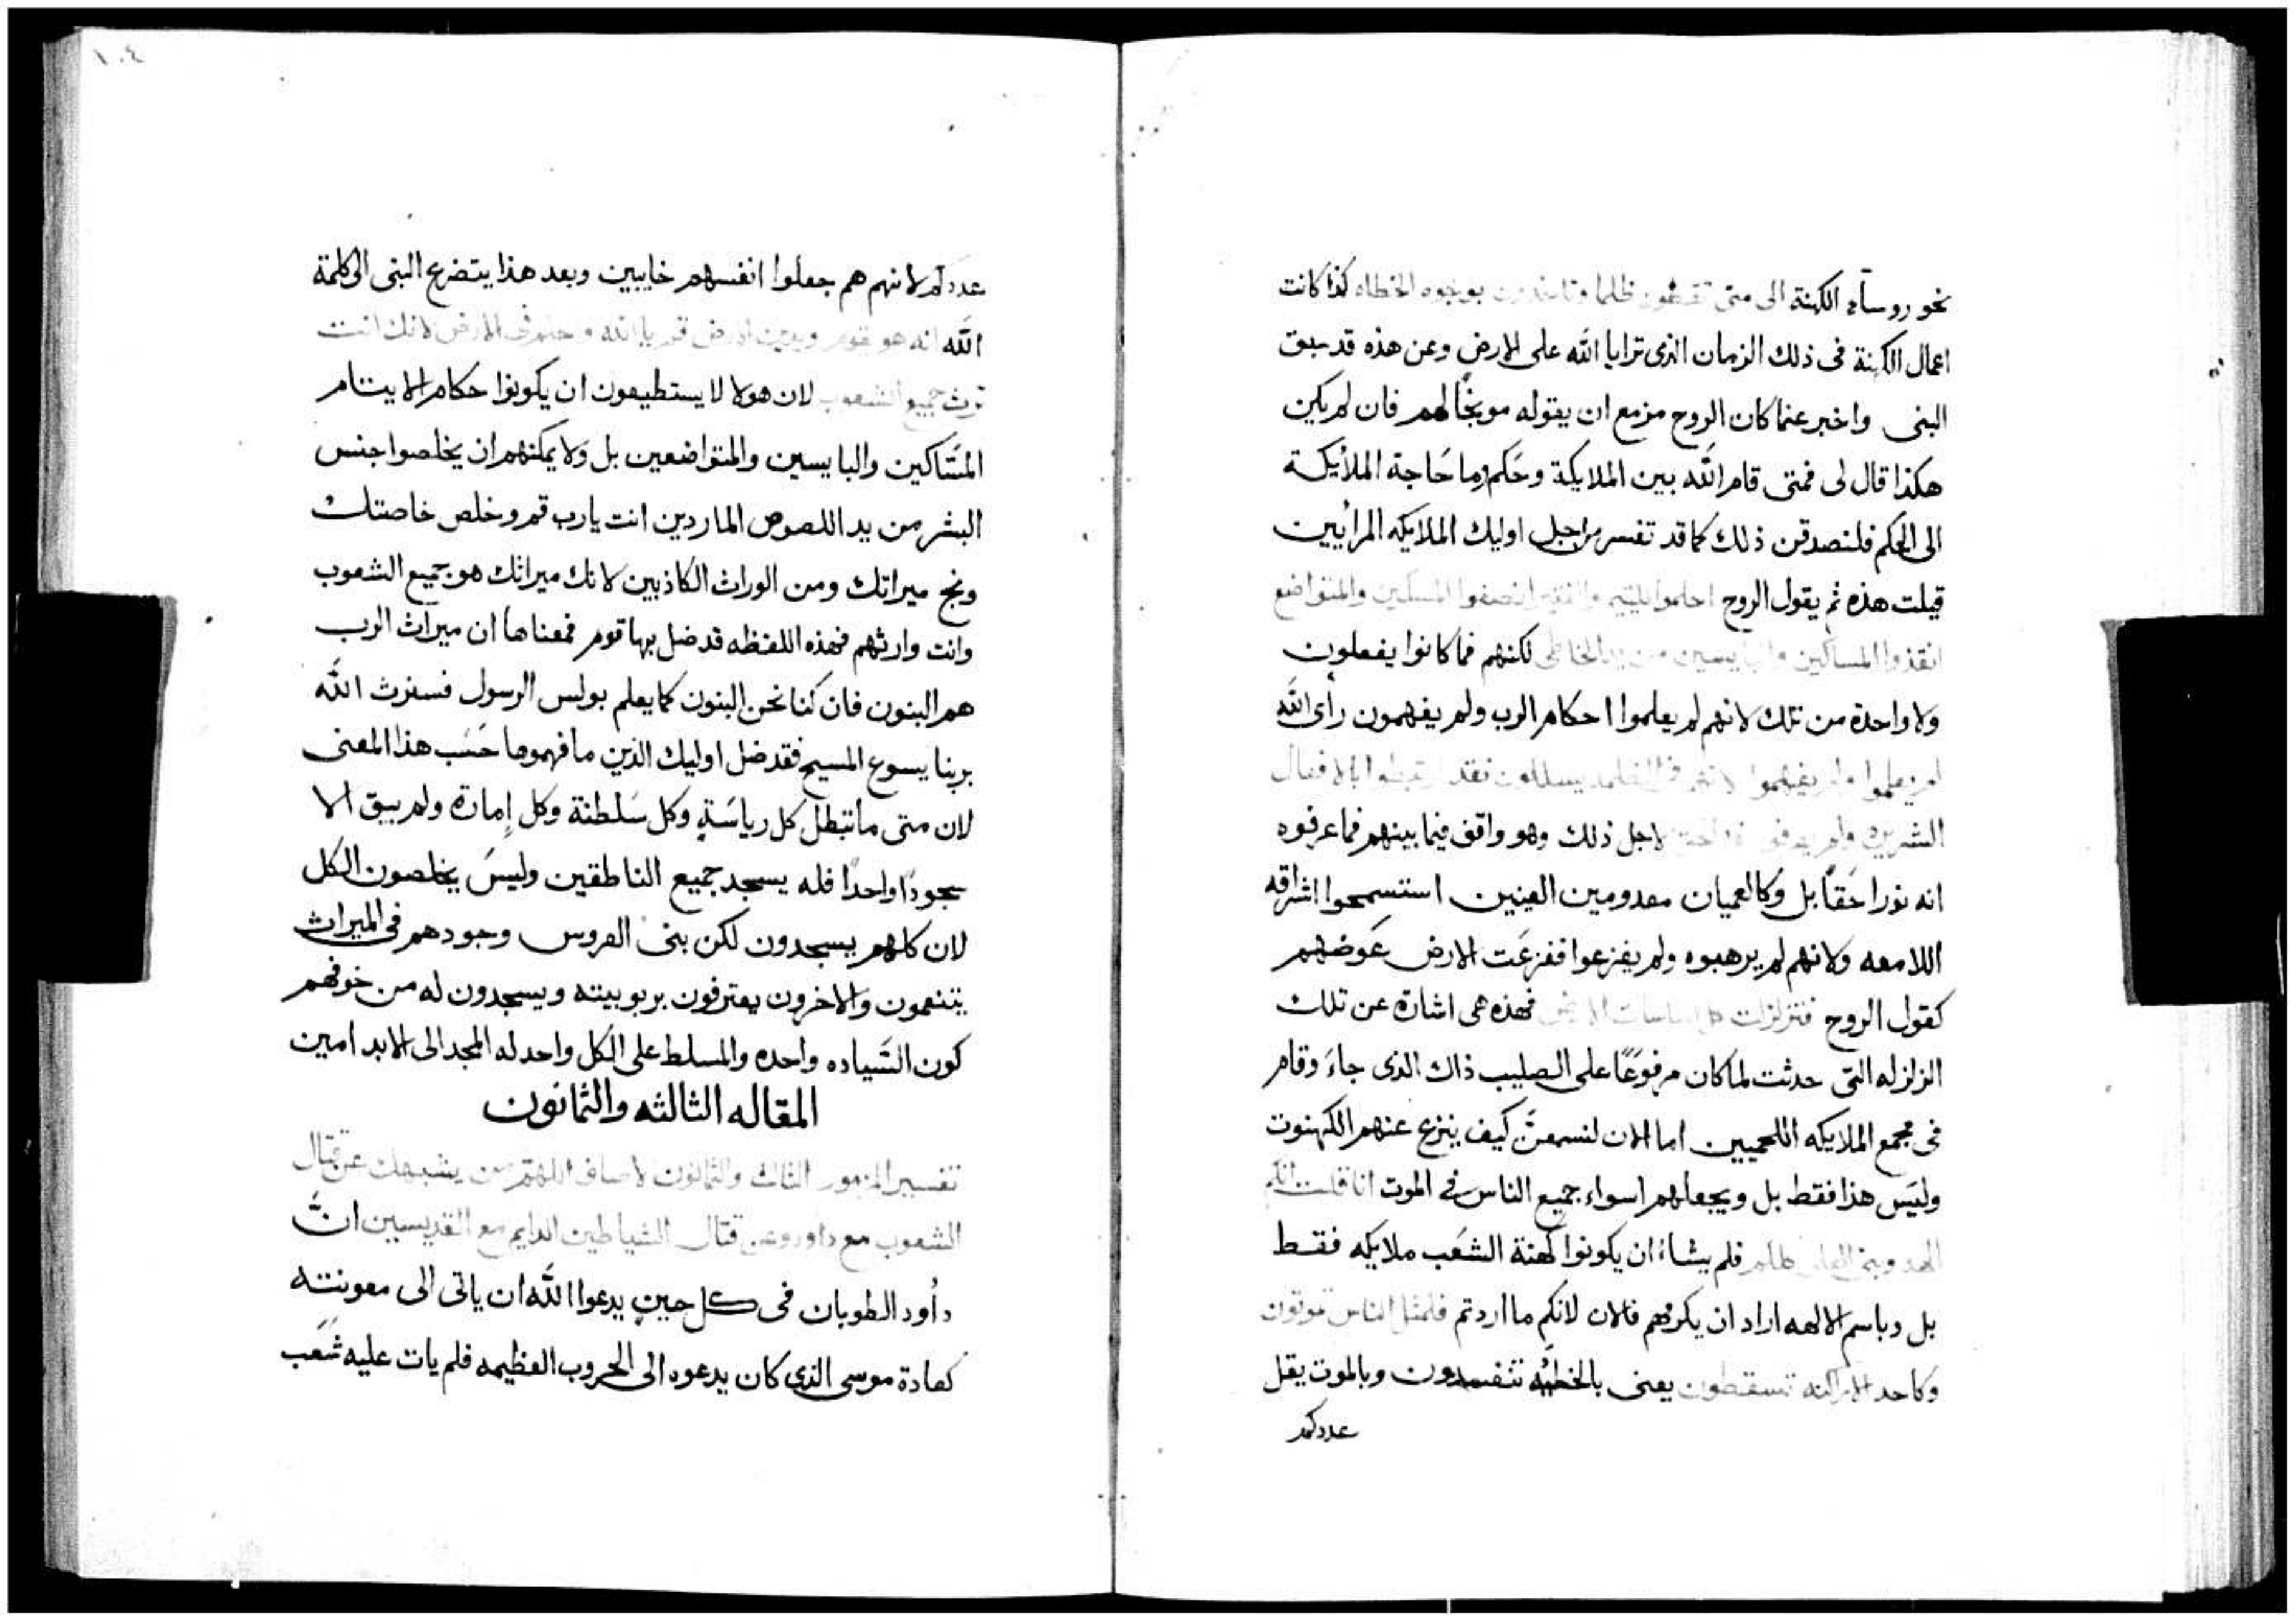 نحو روسآء الكهنة الى متى تقضون ظلما وتاخذون بوجوه الخطاه كذا كانت
اعمال الكهنة فى ذلك الزمان الذى ترايا الله على الارض وعن هذه قد سبق
النبى واخبر عنما كان الروح مزمع ان يقوله موبخًا لهم فان لم يكين
هكذا قال لى فمتى قام الله بين الملايكة وحَكم وما حَاجة الملأيكة
الى الحكم فلنصدقن ذلك كما قد تفسر من اجل اوليك الملايكه المرايين
قيلت هذه ثم يقول الروح احلموا لليتيم والفقير انصفوا المسكين والمتواضع
انقذوا المساكين والبايسين من يد الخاطى لكنهم فما كانوا يفعلون
ولا واحدة من تلك لانهم لم يعلموا احكام الرب ولم يفهمون رأى الله
لم يعلموا ولم يفهموا لانهم فى الظلمه يسللون فقد ارتبطوا بالافعال
الشريره ولم يعرفوا لاجل ذلك وهو واقف فيما بينهم فما عرفوه
انه نورا حَقًا بل وكالعميان معدومين العينين استسمحوا اشراقه
اللامعه ولانهم لم يرهبوه ولم يفزعوا ففزعَت الارض عَوضهم
كقول الروح فتزلزلت كل اساسات الارض فهذه هى اشارة عن تلك
الزلزله التى حدثت لما كان مرفوعًا على الصليب ذاك الذى جاءَ وقام
فى مجمع الملايكه اللحميين اما الان لنسمعنَّ كيف ينزع عنهم الكهنوت
وليَس هذا فقط بل ويجعلهم اسواء جميع الناس فى الموت انا قلت انكم
الهه وبنى العلى كلكم فلم يشاءُ ان يكونوا كهنة الشَعب ملايكه فقط
بل وباسم الالهه اراد ان يكرمهم فالان لانكم ما اردتم فلمثل الناس تموتون
وكاحد الاراكنه تسقطون يعنى بالخطيّه تنفسدون وبالموت يقل
عددكم
١٠٤
عددكم لانهم هم جعلوا انفسهم خايبين وبعد هذا يتضرع النبى الى كلمة
الله انه هو يقوم ويدين الارض قم يا الله وحكم فى الارض لانك انت
ترث جميع الشعوب لان هولا لا يستطيعون ان يكونوا حكام الايتام
المسَاكين والبايسين والمتواضعين بل ولا يمكنهم ان يخلصوا جنس
البشر من يد اللصوص الماردين انت يارب قم وخلص خاصتك
ونج ميراتك ومن الوراث الكاذبين لانك ميراثك هو جميع الشعوب
وانت وارثهم فهذه اللفظه قد ضل بها قوم فمعناها ان ميراث الرب
هم البنون فان كنا نحن البنون كما يعلم بولس الرسول فسنرث الله
بربنا يسوع المسيح فقد ضل اوليك الذين ما فهموها حَسَب هذا المعنى
لان متى ما تبطل كل رياسَةٍ وكل سَلطنة وكل إمارة ولم يبق الا
سجودًا واحدًا فله يسجد جميع الناطقين وليسَ يخلصون الكل
لان كلهم يسجدون لكن بنى العروس وجودهم فى الميراث
يتنعمون والاخرون يعترفون بربوبيته ويسجدون له من خوفهم
كون السَياده واحده والمسلط على الكل واحد له المجد الى الابد امين
المقاله الثالثه والثمانون
تفسير المزمور الثالث والثمانون لاصاف اللهم من يشبهك عن قتال
الشعوب مع داوود وعن قتال الشياطين الدايم مع القديسين انَّ
داُود الطوبان فى كل حينٍ يدعوا الله ان ياتى الى معونته
كعادة موسى الذى كان يدعوه الى الحروب العظيمه فلم يات عليه شَعَب